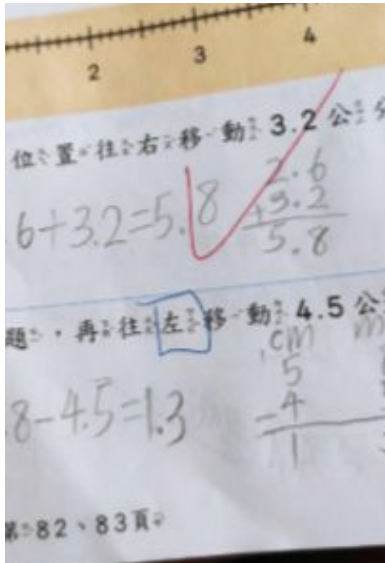 2 3 4
位置往右移動3.2公
6+3.2=5.8
2.6
+3.2
5.8
題，再往左移動4.5公
8-4.5=1.3
cm
5
-4
1
第82、83頁。